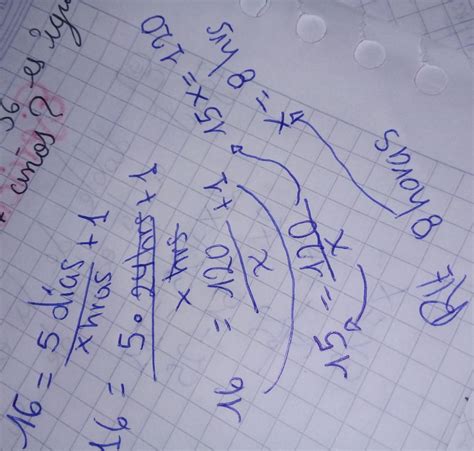 56
años ? es igu
16 = 5 días/x hras + 1
16 = 5 · 24hrs/x hrs + 1
16 = 120/x + 1
15 = 120/x
15x = 120
x = 8 hrs
Rlt
8 horas